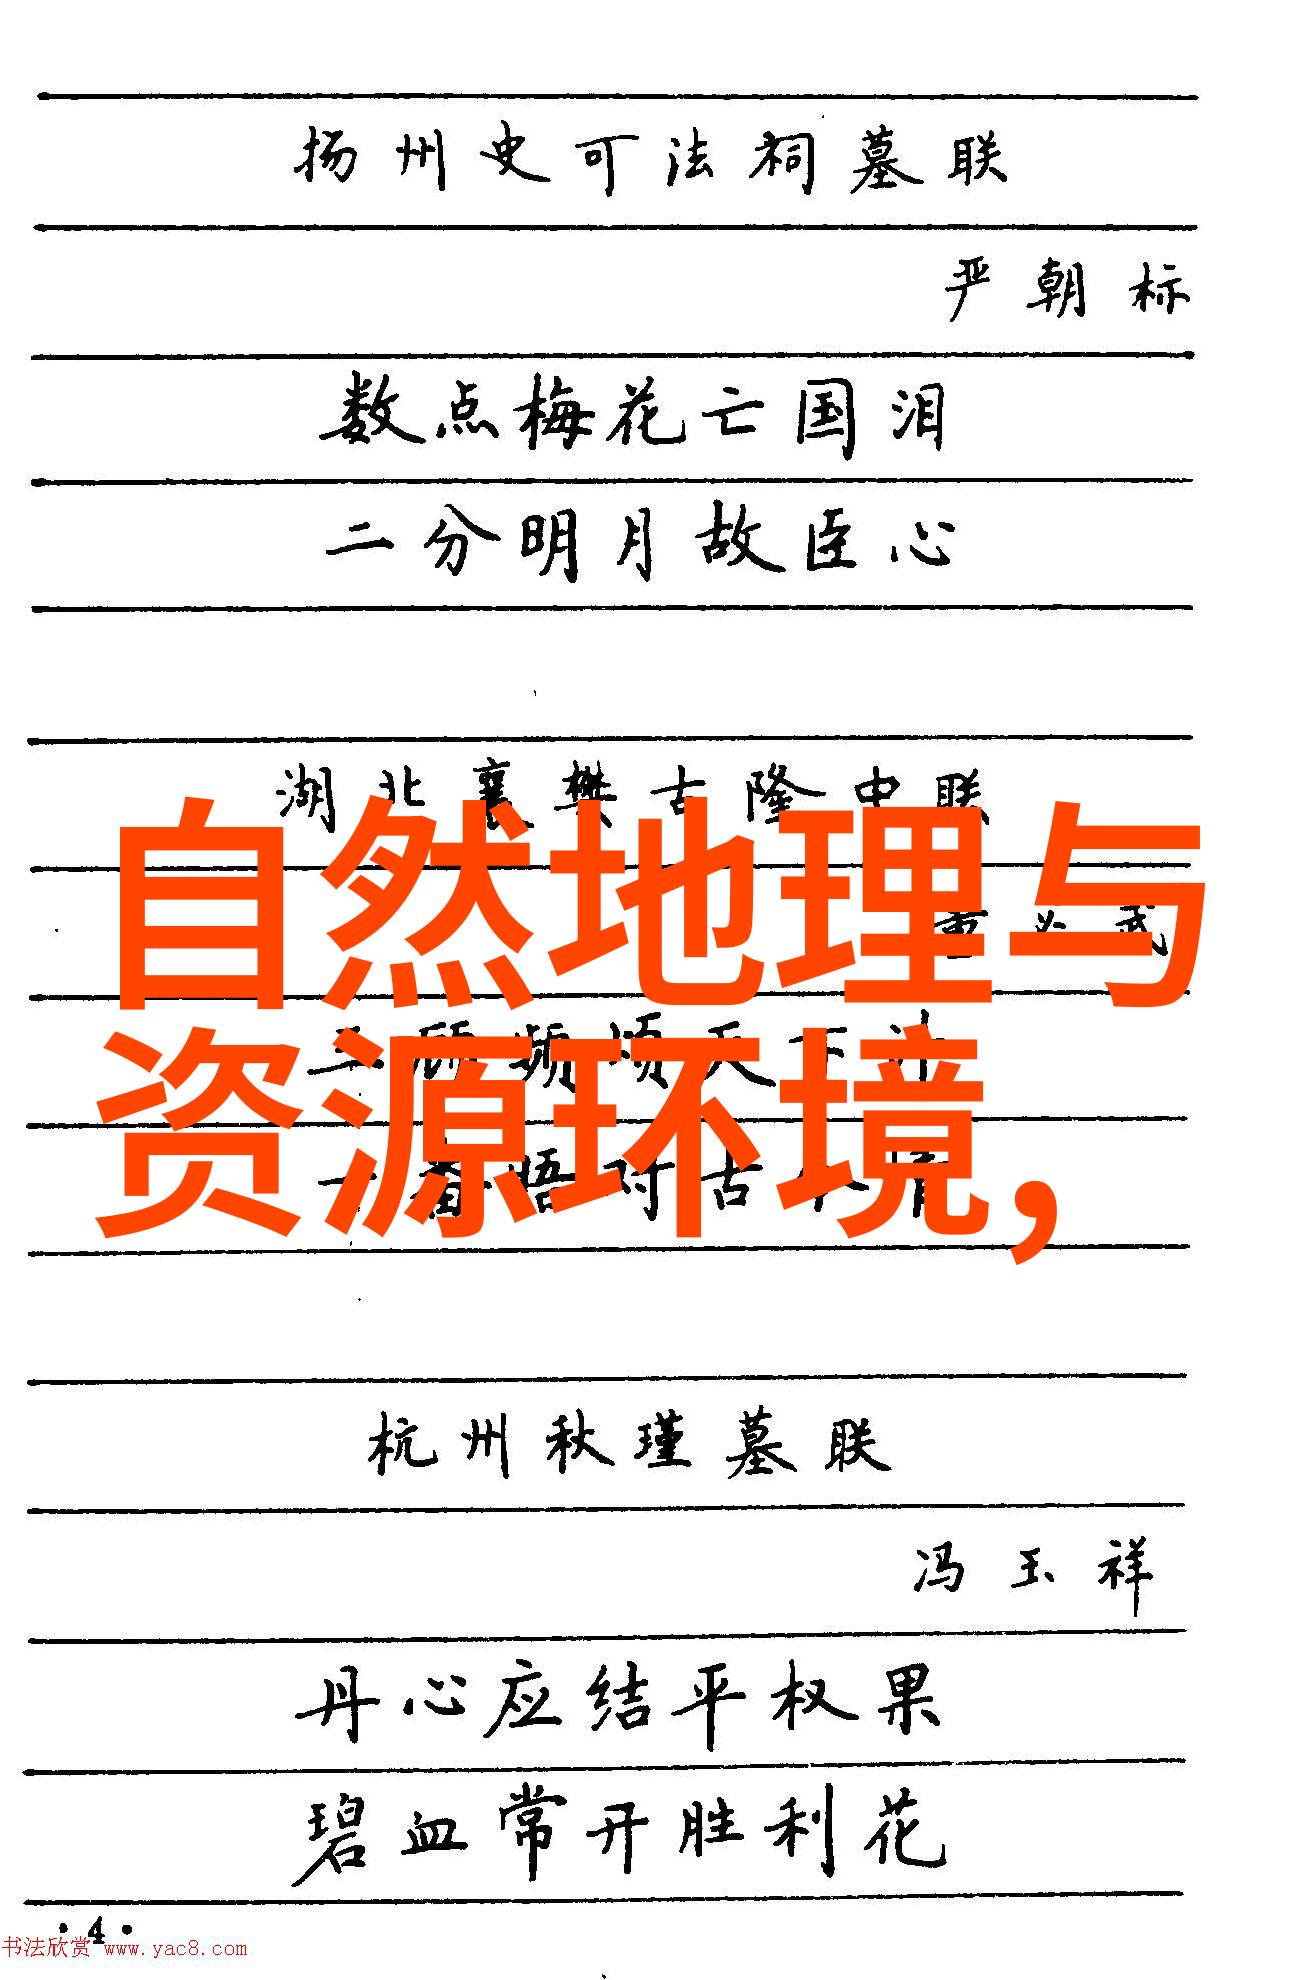 扬州史可法祠墓联
严朝标
数点梅花亡国泪
二分明月故臣心
湖北襄樊古隆中联
董必武
自然地理与
三顾频烦天下计
资源环境，
一番晤对古今情
杭州秋瑾墓联
冯玉祥
丹心应结平权果
碧血常开胜利花
·4·
书法欣赏 www.yac8.com